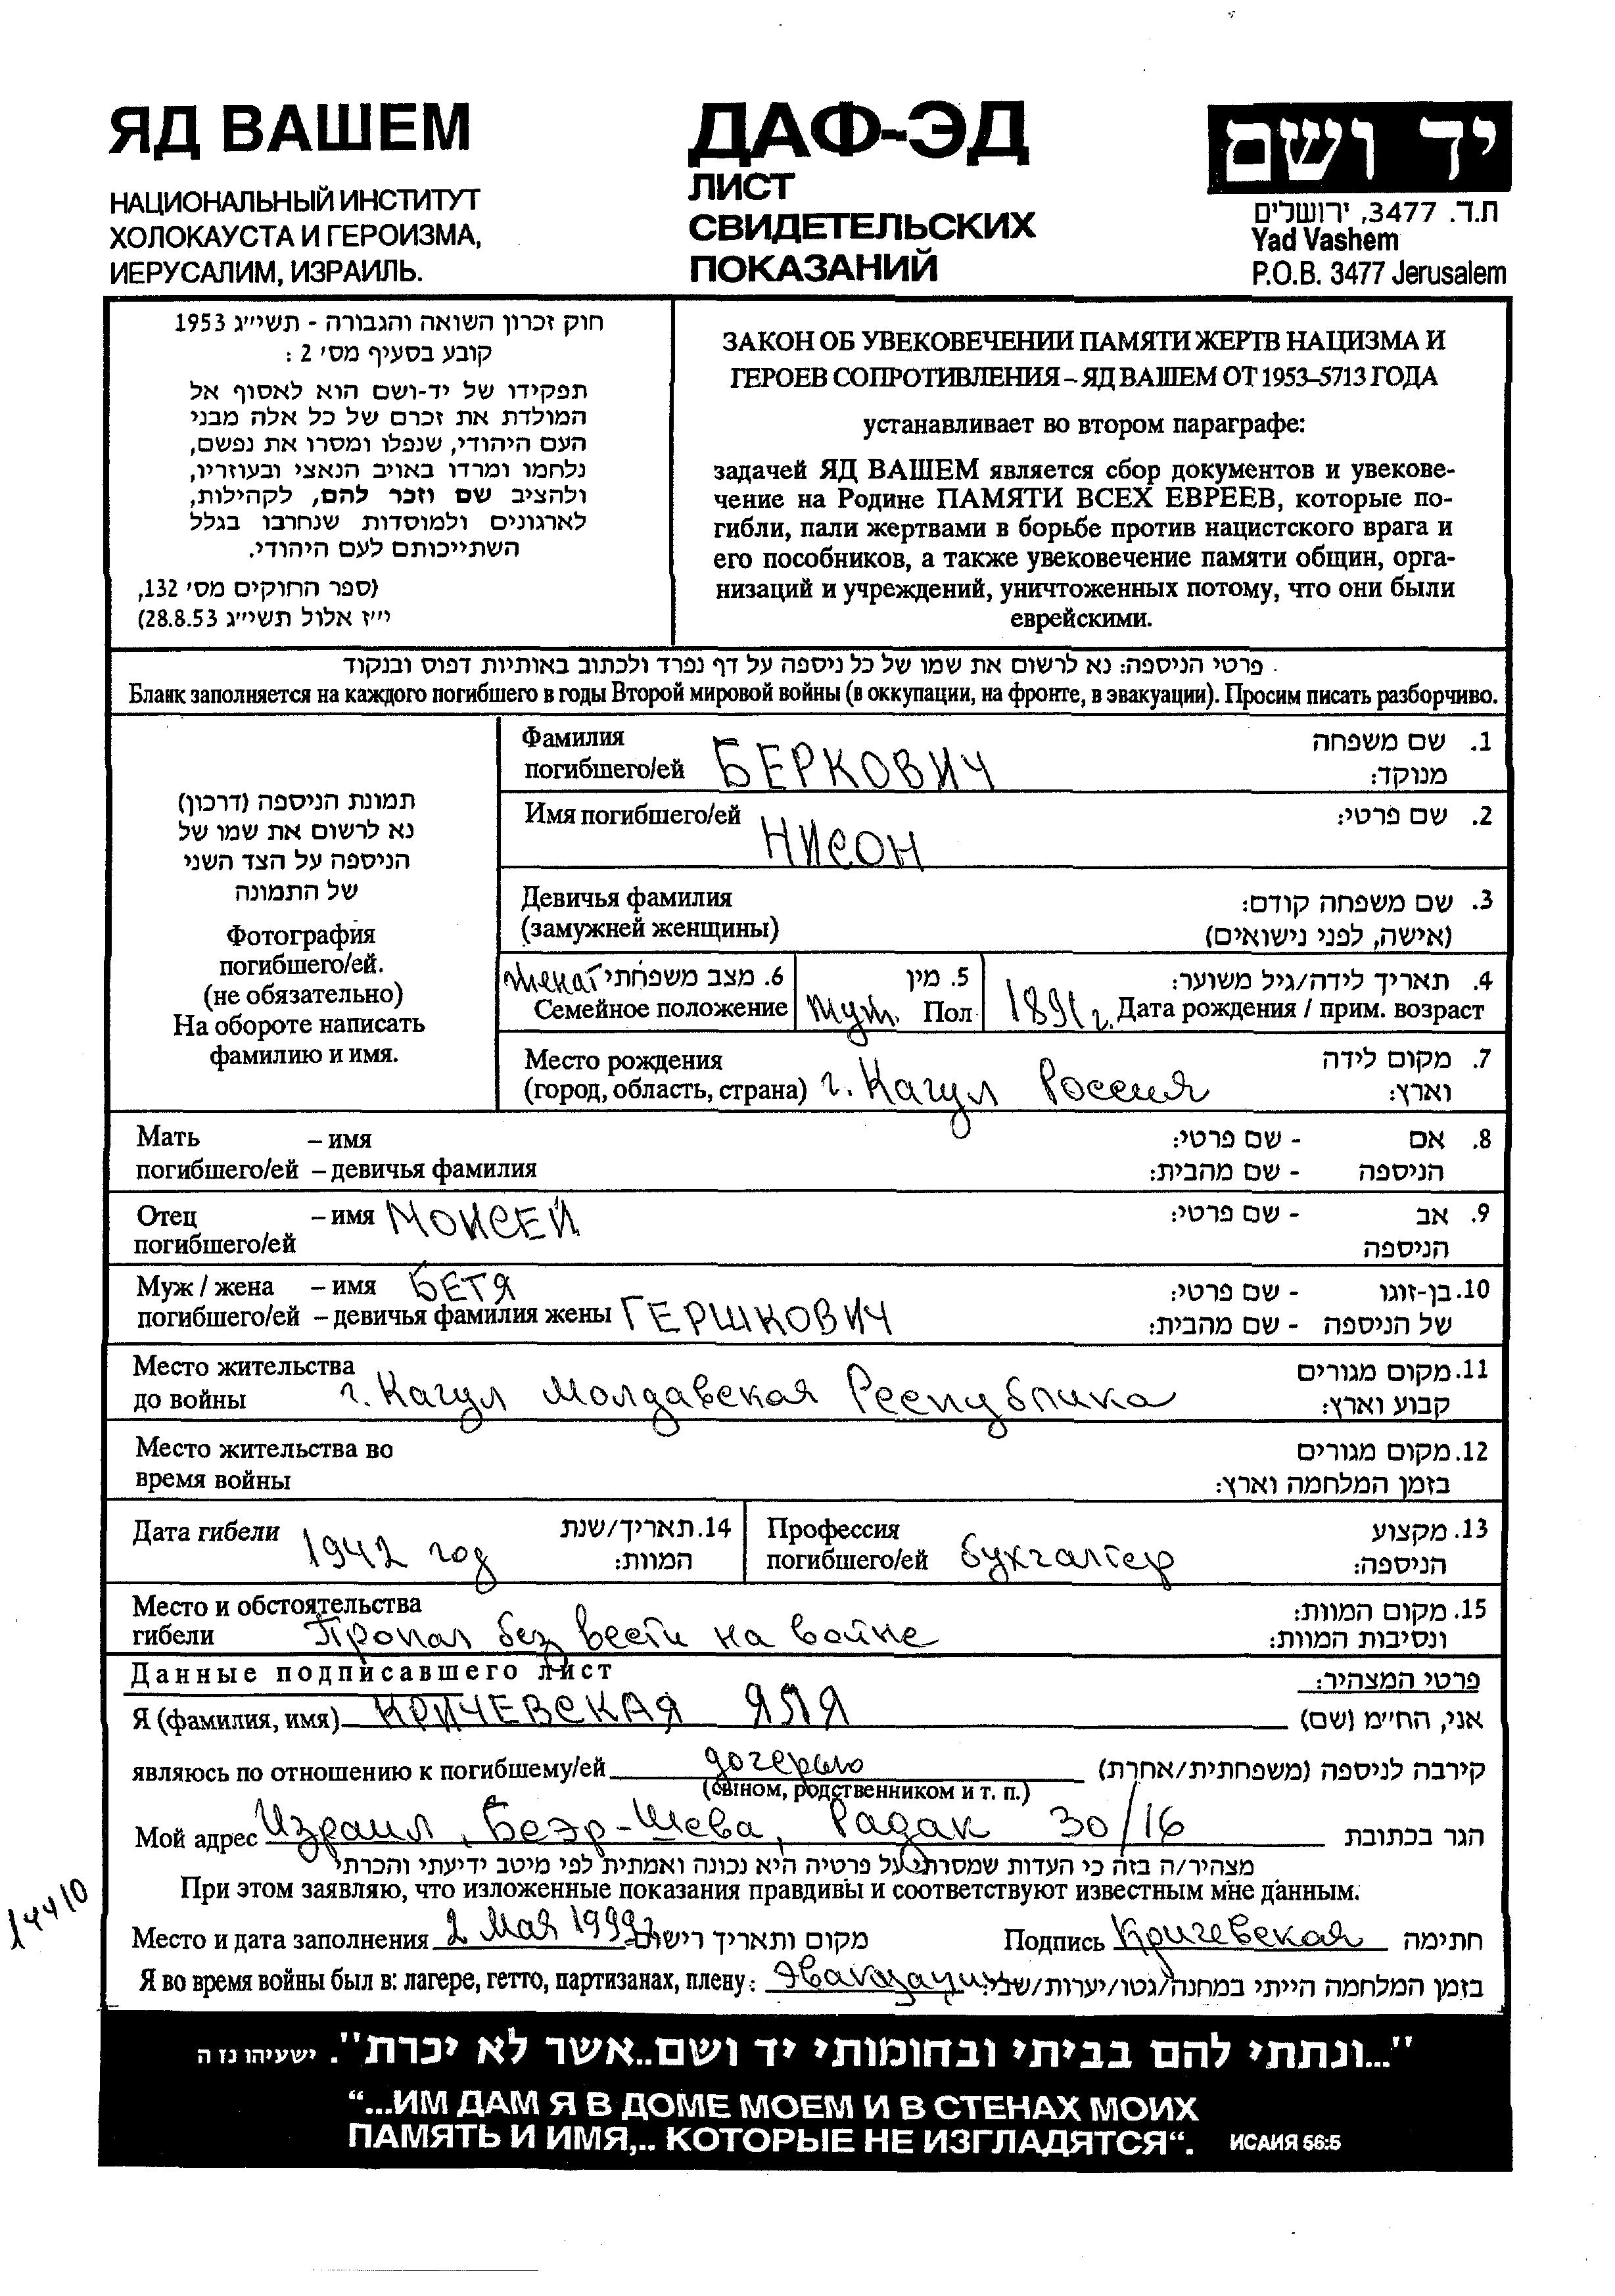 ЯД ВАШЕМ
НАЦИОНАЛЬНЫЙ ИНСТИТУТ
ХОЛОКАУСТА И ГЕРОИЗМА,
ИЕРУСАЛИМ, ИЗРАИЛЬ.
ДАФ-ЭД
ЛИСТ
СВИДЕТЕЛЬСКИХ
ПОКАЗАНИЙ
יד ושם
ת.ד. 3477, ירושלים
Yad Vashem
P.O.B. 3477 Jerusalem
חוק זכרון השואה והגבורה - תשי״ג 1953
קובע בסעיף מס׳ 2 :
תפקידו של יד-ושם הוא לאסוף אל
המולדת את זכרם של כל אלה מבני
העם היהודי, שנפלו ומסרו את נפשם,
נלחמו ומרדו באויב הנאצי ובעוזריו,
ולהציב שם וזכר להם, לקהילות,
לארגונים ולמוסדות שנחרבו בגלל
השתייכותם לעם היהודי.
(ספר החוקים מס׳ 132,
י״ז אלול תשי״ג 28.8.53)
ЗАКОН ОБ УВЕКОВЕЧЕНИИ ПАМЯТИ ЖЕРТВ НАЦИЗМА И
ГЕРОЕВ СОПРОТИВЛЕНИЯ – ЯД ВАШЕМ ОТ 1953–5713 ГОДА
устанавливает во втором параграфе:
задачей ЯД ВАШЕМ является сбор документов и увекове-
чение на Родине ПАМЯТИ ВСЕХ ЕВРЕЕВ, которые по-
гибли, пали жертвами в борьбе против нацистского врага и
его пособников, а также увековечение памяти общин, орга-
низаций и учреждений, уничтоженных потому, что они были
еврейскими.
פרטי הניספה: נא לרשום את שמו של כל ניספה על דף נפרד ולכתוב באותיות דפוס ובנקוד
Бланк заполняется на каждого погибшего в годы Второй мировой войны (в оккупации, на фронте, в эвакуации). Просим писать разборчиво.
תמונת הניספה (דרכון)
נא לרשום את שמו של
הניספה על הצד השני
של התמונה
Фотография
погибшего/ей.
(не обязательно)
На обороте написать
фамилию и имя.
Фамилия 1. שם משפחה
погибшего/ей БЕРКОВИЧ מנוקד:
Имя погибшего/ей НИСОН 2. שם פרטי:
Девичья фамилия 3. שם משפחה קודם:
(замужней женщины) (אישה, לפני נישואים)
женат 6. מצב משפחתי 5. מין 4. תאריך לידה/גיל משוער:
Семейное положение муж. Пол 1891 г. Дата рождения / прим. возраст
Место рождения 7. מקום לידה
(город, область, страна) г. Кагул Россия וארץ:
Мать – имя 8. אם - שם פרטי:
погибшего/ей – девичья фамилия הניספה - שם מהבית:
Отец – имя МОИСЕЙ 9. אב - שם פרטי:
погибшего/ей הניספה
Муж / жена – имя БЕТЯ 10. בן-זוגו - שם פרטי:
погибшего/ей – девичья фамилия жены ГЕРШКОВИЧ של הניספה - שם מהבית:
Место жительства 11. מקום מגורים
до войны г. Кагул Молдавская Республика קבוע וארץ:
Место жительства во 12. מקום מגורים
время войны בזמן המלחמה וארץ:
Дата гибели 1942 год 14. תאריך/שנת
המוות:
Профессия 13. מקצוע
погибшего/ей бухгалтер הניספה:
Место и обстоятельства 15. מקום המוות:
гибели Пропал без вести на войне ונסיבות המוות:
Данные подписавшего лист פרטי המצהיר:
Я (фамилия, имя) КРИЧЕВСКАЯ ЯЛЯ אני, הח״מ (שם)
являюсь по отношению к погибшему/ей дочерью קירבה לניספה (משפחתית/אחרת)
(сыном, родственником и т. п.)
Мой адрес Израил, Беэр-Шева, Радак 30/16 הגר בכתובת
מצהיר/ה בזה כי העדות שמסרתי על פרטיה היא נכונה ואמתית לפי מיטב ידיעתי והכרתי
При этом заявляю, что изложенные показания правдивы и соответствуют известным мне данным.
14410
Место и дата заполнения 2 Мая 1999г מקום ותאריך רישום Подпись Кричевская חתימה
Я во время войны был в: лагере, гетто, партизанах, плену: בזמן המלחמה הייתי במחנה/גטו/יערות/שבי:
"...ונתתי להם בביתי ובחומותי יד ושם..אשר לא יכרת". ישעיהו נז ה
“...ИМ ДАМ Я В ДОМЕ МОЕМ И В СТЕНАХ МОИХ
ПАМЯТЬ И ИМЯ,.. КОТОРЫЕ НЕ ИЗГЛАДЯТСЯ“. ИСАИЯ 56:5